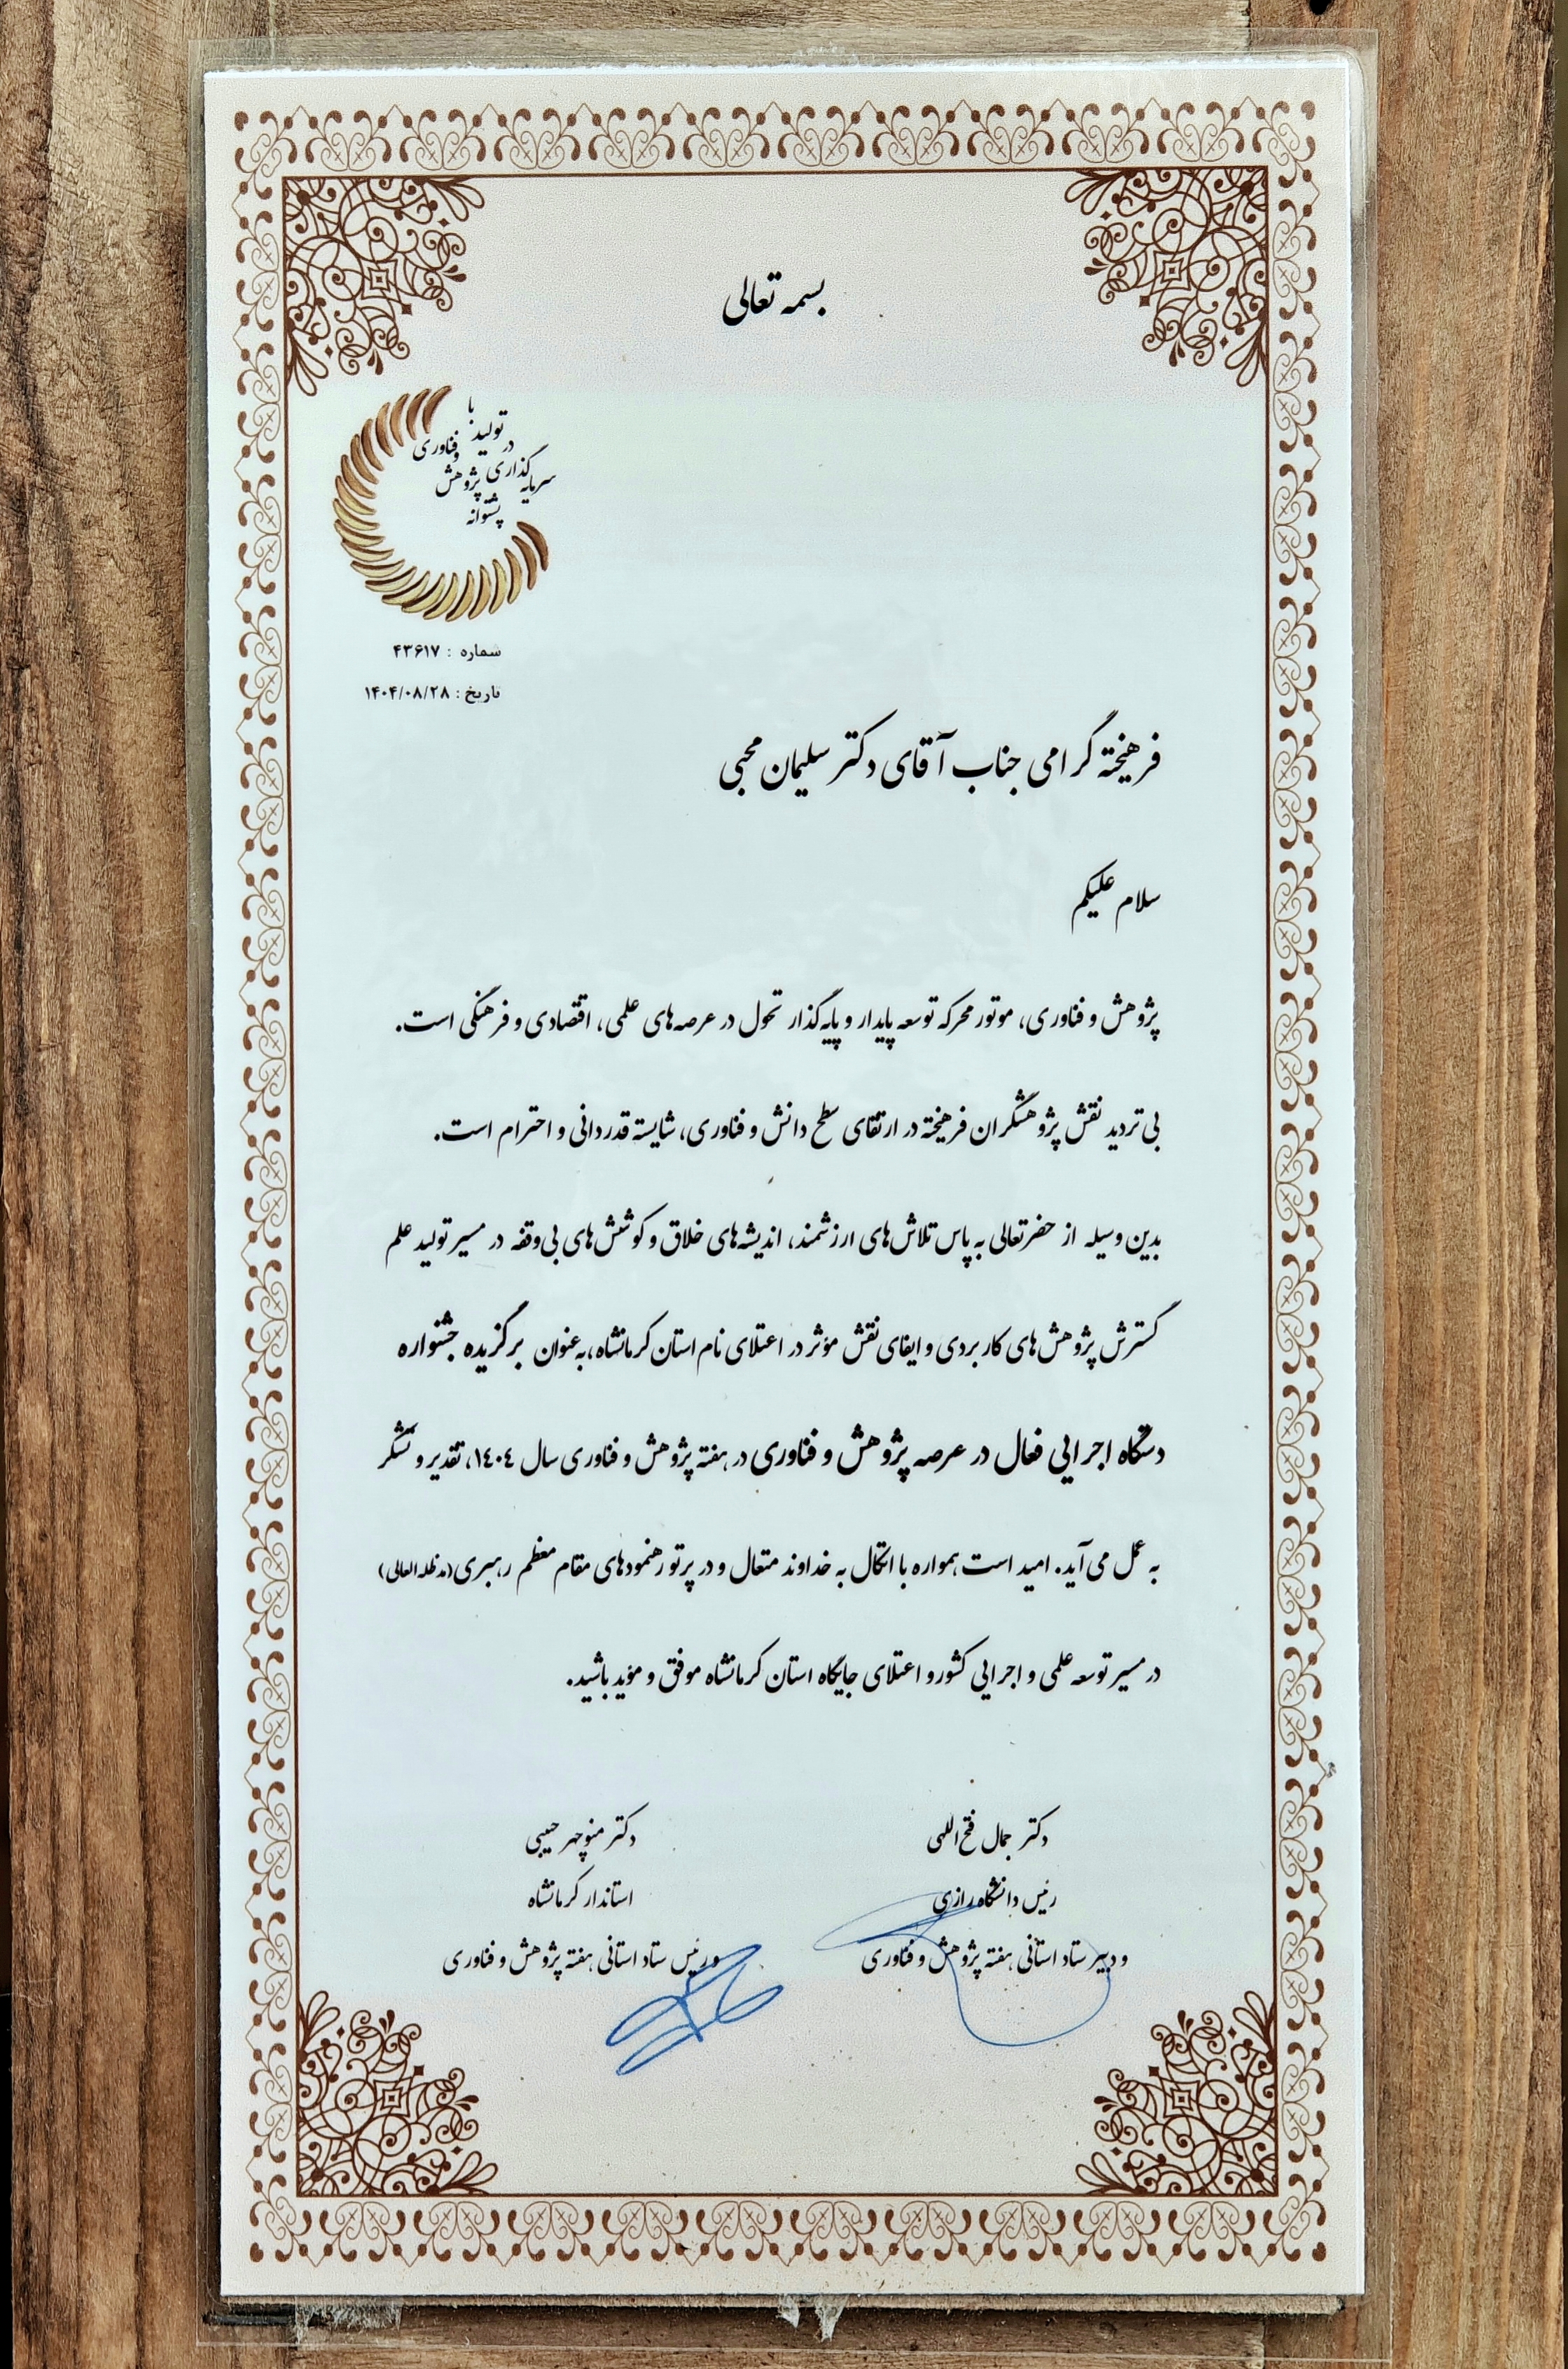 بسمه تعالی
با
تولید
در
و فناوری
سرمایه‌گذاری
پژوهش
پشتوانه
شماره : ۴۳۶۱۷
تاریخ : ۱۴۰۴/۰۸/۲۸
فرهیخته گرامی جناب آقای دکتر سلیمان محبی
سلام علیکم
پژوهش و فناوری، موتور محرکه توسعه پایدار و پایه‌گذار تحول در عرصه‌های علمی، اقتصادی و فرهنگی است.
بی تردید نقش پژوهشگران فرهیخته در ارتقای سطح دانش و فناوری، شایسته قدردانی و احترام است.
بدین وسیله از حضرتعالی به پاس تلاش‌های ارزشمند، اندیشه‌های خلاق و کوشش‌های بی‌وقفه در مسیر تولید علم
گسترش پژوهش‌های کاربردی و ایفای نقش مؤثر در اعتلای نام استان کرمانشاه، به‌عنوان برگزیده جشنواره
دستگاه اجرایی فعال در عرصه پژوهش و فناوری در هفته پژوهش و فناوری سال ١٤٠٤، تقدیر و تشکر
به عمل می آید. امید است همواره با اتکال به خداوند متعال و در پرتو رهنمودهای مقام معظم رهبری (مدظله العالی)
در مسیر توسعه علمی و اجرایی کشور و اعتلای جایگاه استان کرمانشاه موفق و مؤید باشید.
دکتر جمال فتح‌اللهی
رئیس دانشگاه رازی
و دبیر ستاد استانی هفته پژوهش و فناوری
دکتر منوچهر حبیبی
استاندار کرمانشاه
و رئیس ستاد استانی هفته پژوهش و فناوری